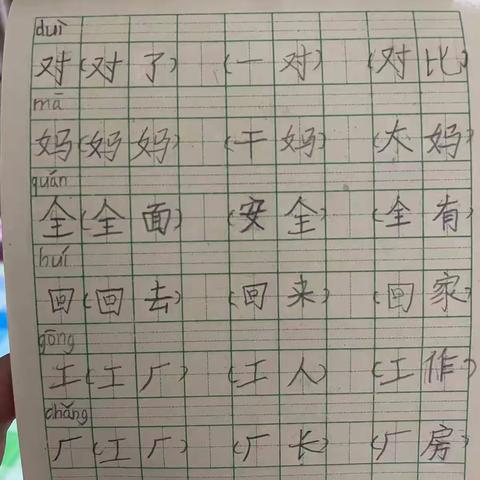 duì
对(对了) (一对) (对比)
mā
妈(妈妈) (干妈) (大妈)
quán
全(全面) (安全) (全有)
huí
回(回去) (回来) (回家)
gōng
工(工厂) (工人) (工作)
chǎng
厂(工厂) (厂长) (厂房)